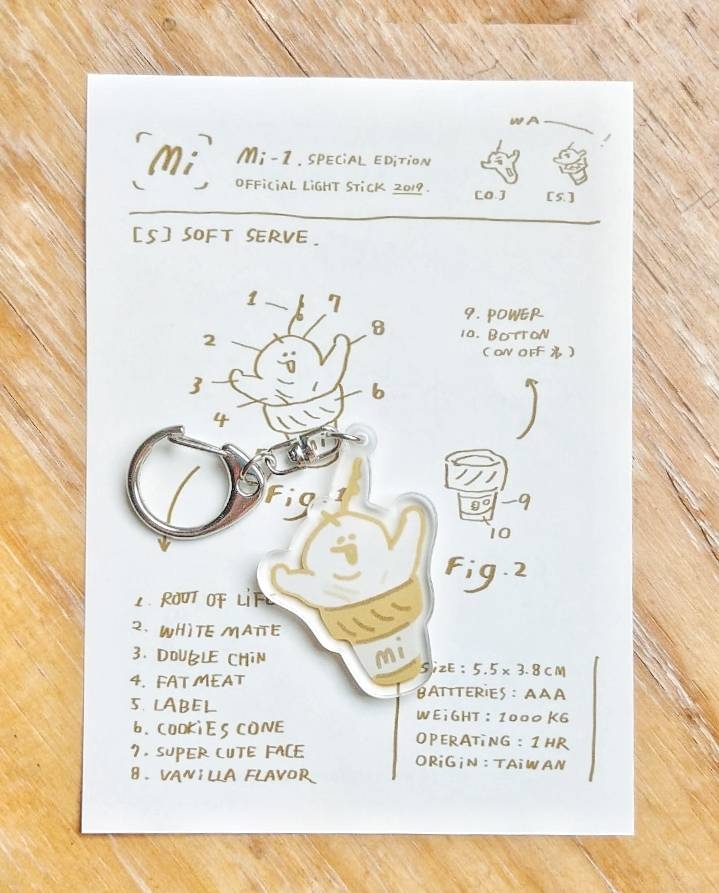 Mi
Mi-1. SPECIAL EDITION
OFFICIAL LIGHT STICK 2019.
WA
[O.]
[S.]
[S] SOFT SERVE.
1
7
2
8
3
6
4
9. POWER
10. BOTTON
(ON OFF
Fig.1
9
10
Fig.2
mi
1. ROOT OF LIFE
2. WHITE MATTE
3. DOUBLE CHIN
4. FAT MEAT
5. LABEL
6. COOKIES CONE
7. SUPER CUTE FACE
8. VANILLA FLAVOR
SIZE : 5.5 x 3.8 CM
BATTTERIES : AAA
WEIGHT : 1000 KG
OPERATING : 1 HR
ORIGIN : TAIWAN